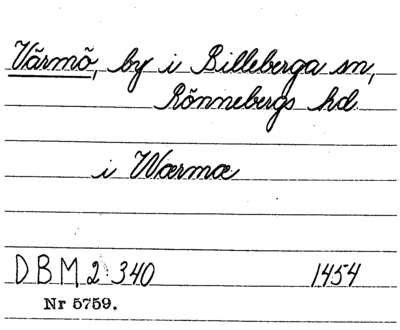 Värmö, by i Billeberga sn,
Rönnebergs hd.
i Wærmæ
DBM 2:340 1454
Nr 5759.